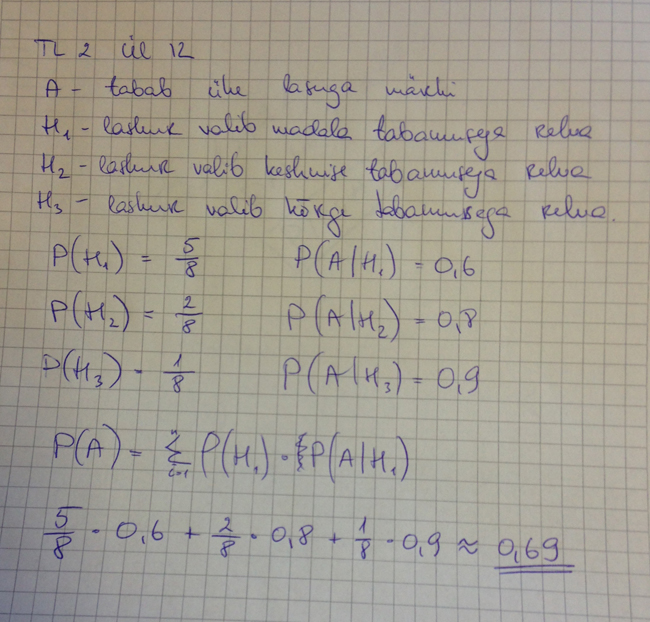 TL 2 ül 12
A - tabab ühe lasuga märki
H₁ - laskur valib madala tabamusega relva
H₂ - laskur valib keskmise tabamusega relva
H₃ - laskur valib kõrge tabamusega relva.
P(H₁) = 5/8 P(A|H₁) = 0,6
P(H₂) = 2/8 P(A|H₂) = 0,8
P(H₃) = 1/8 P(A|H₃) = 0,9
P(A) = Σ P(H₁) · P(A|H₁)
5/8 · 0,6 + 2/8 · 0,8 + 1/8 · 0,9 ≈ 0,69